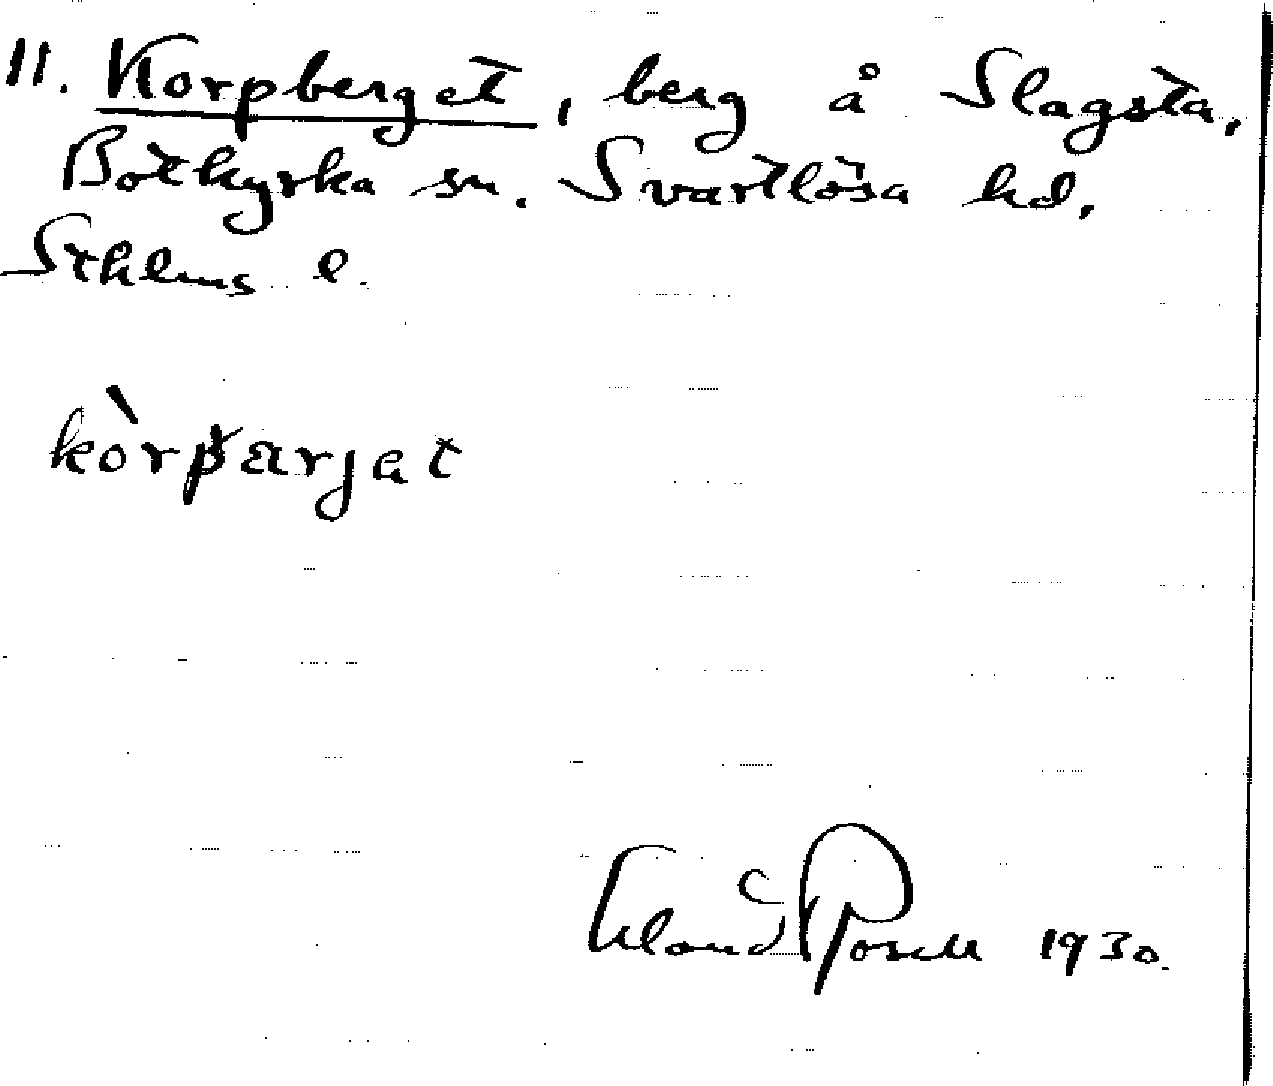 11. Korpberget, berg å Slagsta,
Botkyrka sn. Svartlösa hd,
Sthlms l.
kòrpbærjat
Erland Rosell 1930.